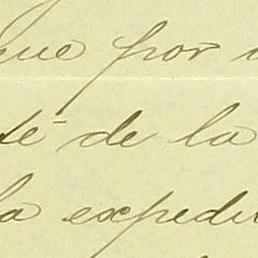 que por
té de la
la expedi